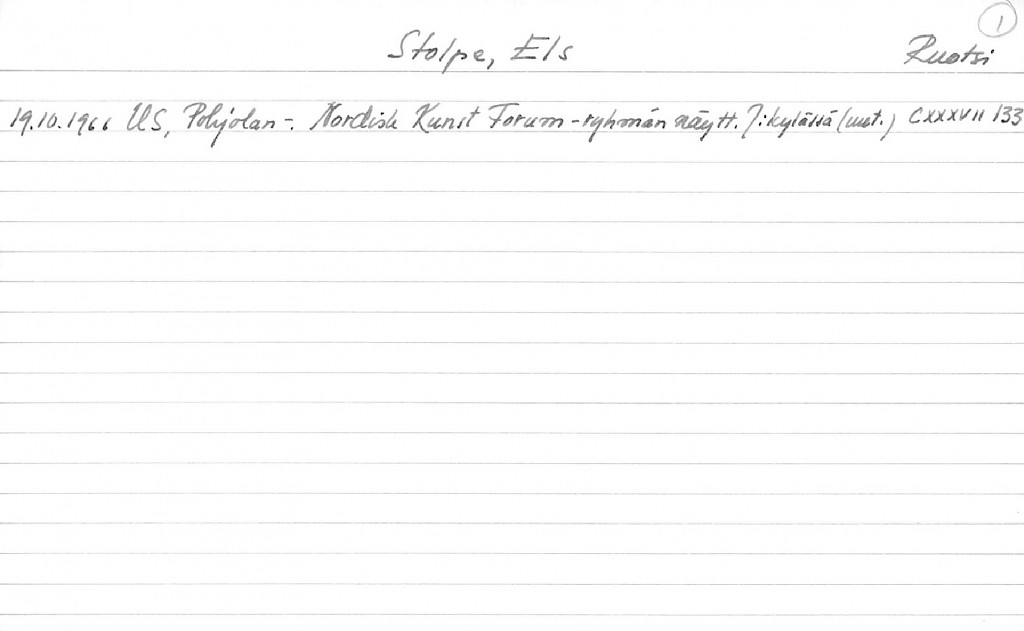 1
Stolpe, Els Ruotsi
19.10.1966 US, Pohjolan -. Nordisk Kunst Forum -ryhmän näytt. J:kylässä (uut.) CXXXVII 133